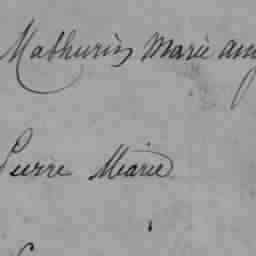 Mathurin Marie ang
Pierre Marie